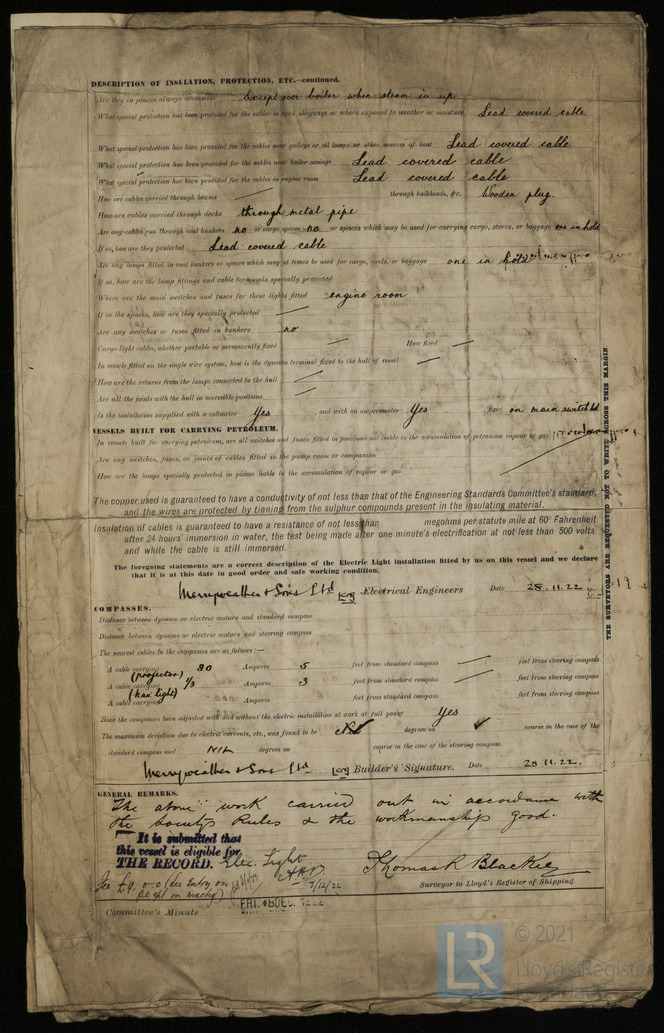 DESCRIPTION OF INSULATION, PROTECTION, ETC.—continued.
Are they in places always accessible Except over boiler when steam is up
What special protection has been provided for the cables in open alleyways or where exposed to weather or moisture Lead covered cable
What special protection has been provided for the cables near galleys or oil lamps or other sources of heat Lead covered cable
What special protection has been provided for the cables near boiler casings Lead covered cable
What special protection has been provided for the cables in engine room Lead covered cable
How are cables carried through beams — through bulkheads, &c. Wooden plug.
How are cables carried through decks through metal pipe
Are any cables run through coal bunkers no or cargo spaces no or spaces which may be used for carrying cargo, stores, or baggage one in hold
If so, how are they protected Lead covered cable
Are any lamps fitted in coal bunkers or spaces which may at times be used for cargo, coals, or baggage one in hold
If so, how are the lamp fittings and cable terminals specially protected
Where are the main switches and fuses for these lights fitted engine room
If in the spaces, how are they specially protected —
Are any switches or fuses fitted in bunkers no
Cargo light cables, whether portable or permanently fixed — How fixed —
In vessels fitted on the single wire system, how is the dynamo terminal fixed to the hull of vessel —
How are the returns from the lamps connected to the hull
Are all the joints with the hull in accessible positions
Is the installation supplied with a voltmeter Yes , and with an amperemeter Yes , fixed on main switch bd
VESSELS BUILT FOR CARRYING PETROLEUM.
In vessels built for carrying petroleum, are all switches and fuses fitted in positions not liable to the accumulation of petroleum vapour or gas
Are any switches, fuses, or joints of cables fitted in the pump room or companion
How are the lamps specially protected in places liable to the accumulation of vapour or gas
The copper used is guaranteed to have a conductivity of not less than that of the Engineering Standards Committee's standard,
and the wires are protected by tinning from the sulphur compounds present in the insulating material.
Insulation of cables is guaranteed to have a resistance of not less than megohms per statute mile at 60° Fahrenheit
after 24 hours' immersion in water, the test being made after one minute's electrification at not less than 500 volts
and while the cable is still immersed.
The foregoing statements are a correct description of the Electric Light installation fitted by us on this vessel and we declare
that it is at this date in good order and safe working condition.
Merryweather & Sons Ltd Electrical Engineers Date 28.11.22
COMPASSES.
Distance between dynamo or electric motors and standard compass
Distance between dynamo or electric motors and steering compass
The nearest cables to the compasses are as follows:—
A cable carrying 80 Amperes 5 feet from standard compass — feet from steering compass
(projector)
A cable carrying 1/3 Amperes 3 feet from standard compass — feet from steering compass
(nav light)
A cable carrying Amperes feet from standard compass feet from steering compass
Have the compasses been adjusted with and without the electric installation at work at full power Yes
The maximum deviation due to electric currents, etc., was found to be Nil degrees on course in the case of the
standard compass and Nil degrees on course in the case of the steering compass.
Merryweather & Sons Ltd Builder's Signature. Date 28.11.22.
GENERAL REMARKS.
The above work carried out in accordance with
the Society's Rules & the workmanship good.
It is submitted that
this vessel is eligible for
THE RECORD. Elec. Light
Thomas R Blackie
Surveyor to Lloyd's Register of Shipping.
Fee £9.0.0 (See Entry on
Committee's Minute FRI. 8 DEC. 1922
THE SURVEYORS ARE REQUESTED NOT TO WRITE ACROSS THIS MARGIN.
LR
© 2021
Lloyd's Register
Foundation